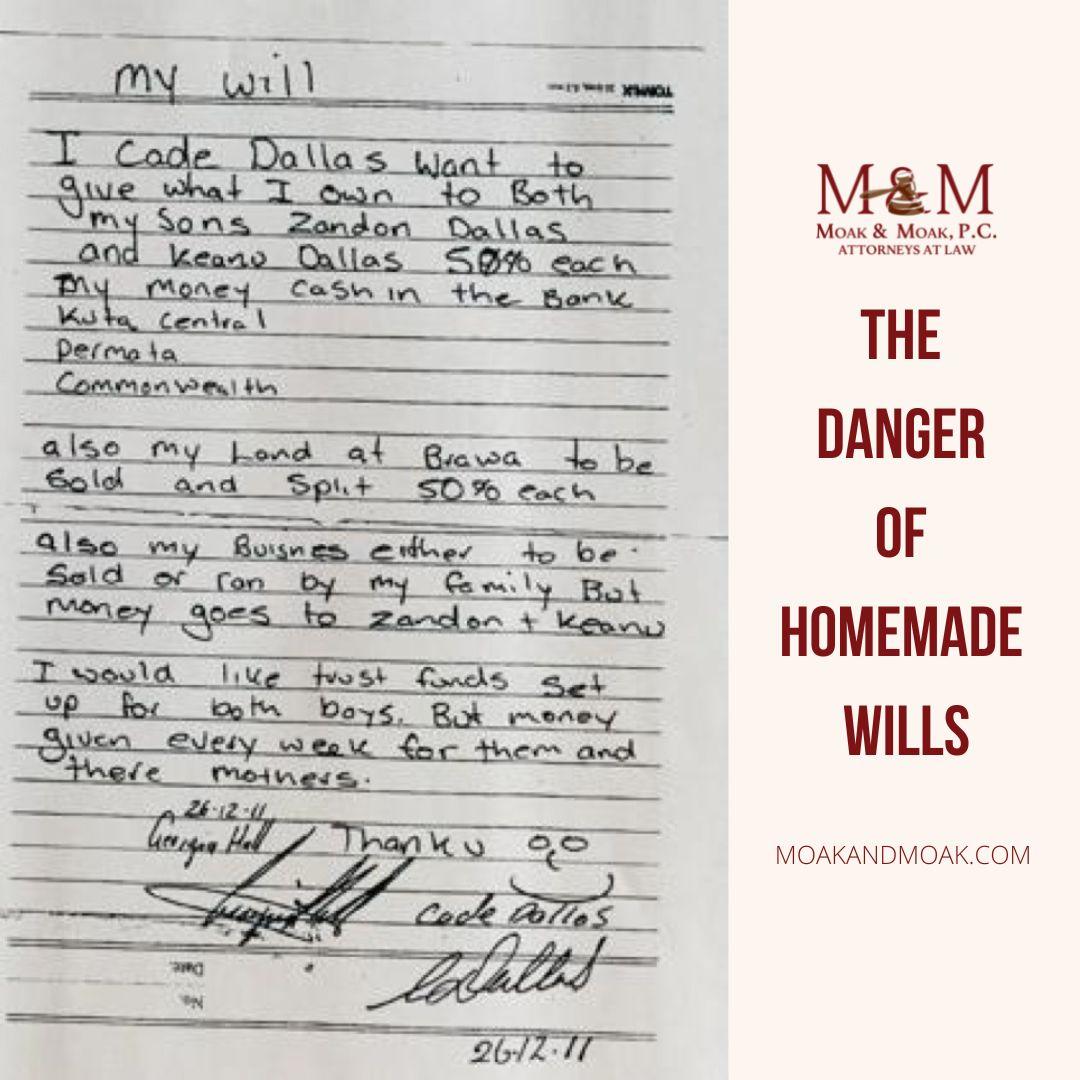 my will
TOMPLA
I Cade Dallas Want to
give what I own to Both
my Sons Zandon Dallas
and Keanu Dallas 50% each
my money cash in the Bank
Kuta Central
Permata
Commonwealth
also my Land at Brawa to be
Sold and Split 50% each
also my Buisnes either to be
Sold or ran by my family But
money goes to Zandon + Keanu
I would like trust funds set
up for both boys. But money
given every week for them and
there mothers.
26-12-11
Georgia Hall
Thank u
Cade Dallas
CaDallas
Date:
No.
26.12.11
M&M
MOAK & MOAK, P.C.
ATTORNEYS AT LAW
THE
DANGER
OF
HOMEMADE
WILLS
MOAKANDMOAK.COM